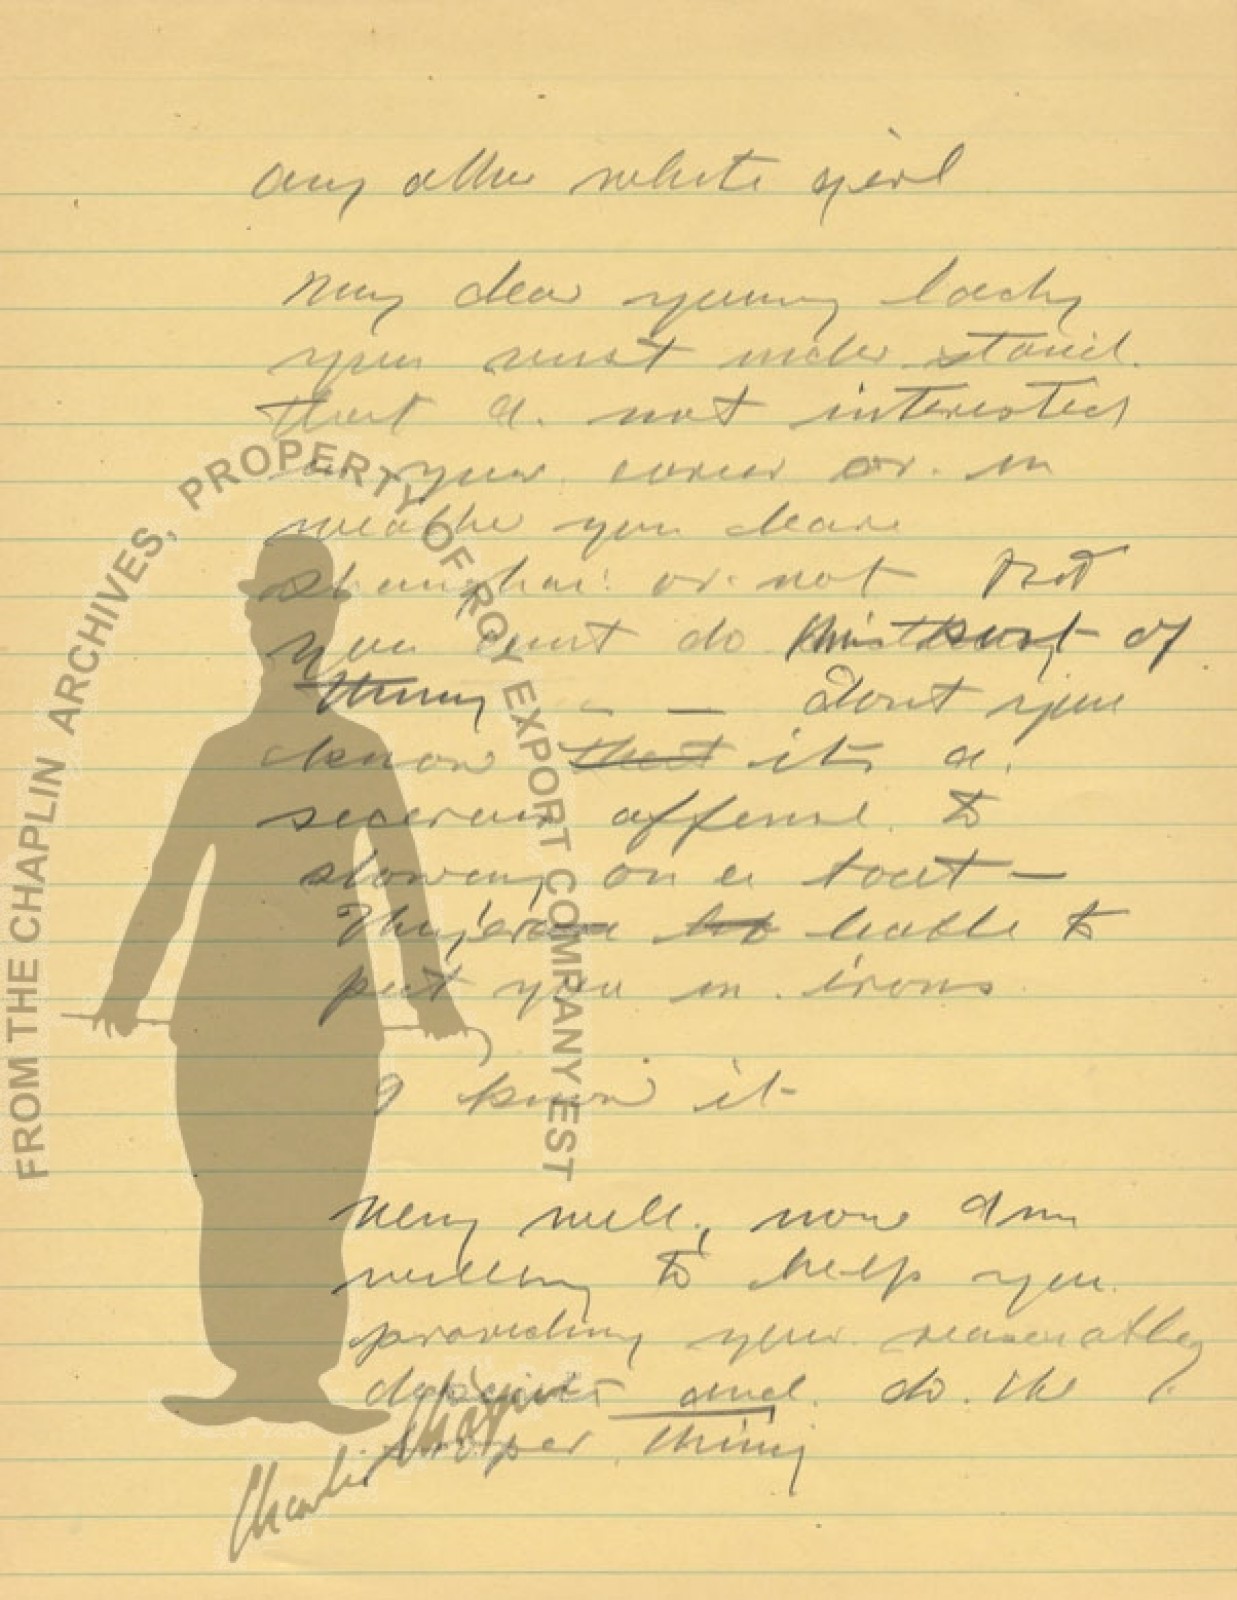 any other white girl
My dear young lady
you must understand.
that I. not interested
in your. career or. in
weathe you leave
Shanghai. or. not But
you cant do this sort of
thing — — dont you
know that its a.
serious offense. to
stowing on a boat —
They're liable to
put you in. irons
I know it
Very well, now I m
willing to help you.
providing your reasonable
and. do. the
proper thing
FROM THE CHAPLIN ARCHIVES, PROPERTY OF ROY EXPORT COMPANY EST
Charlie Chaplin